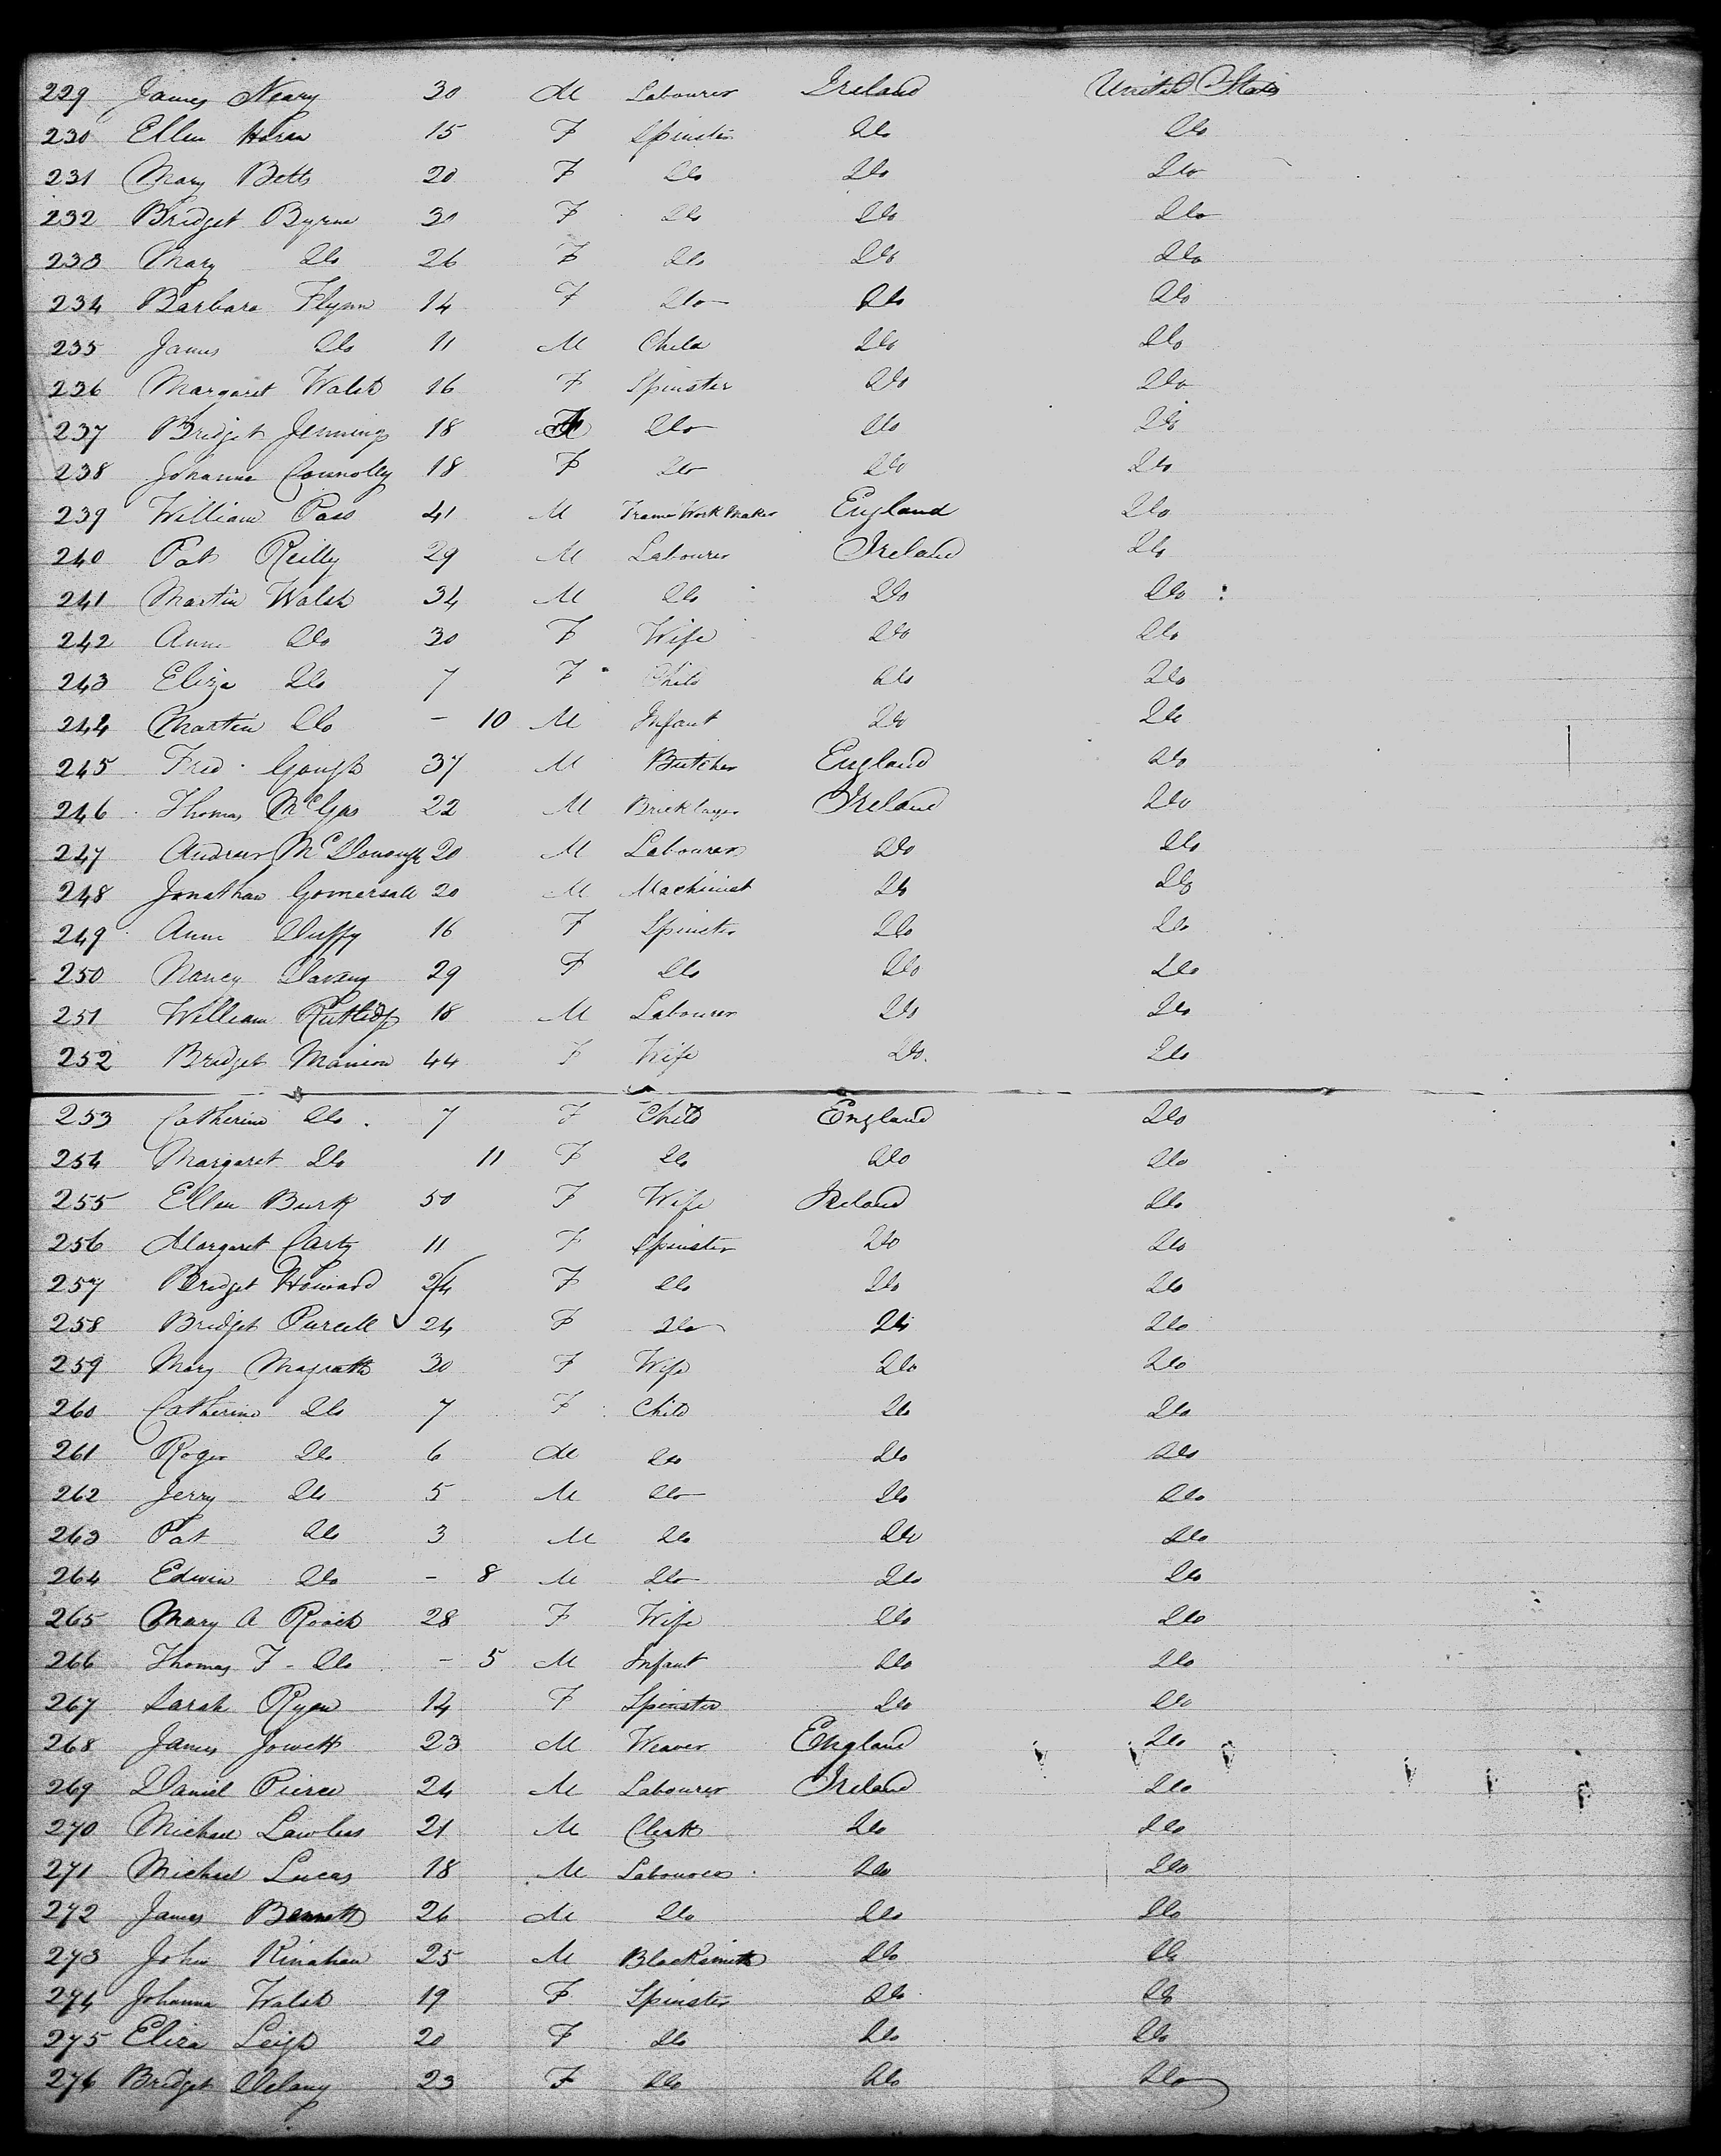 229 James Neary 30 M Labourer Ireland United States
230 Ellen Horan 15 F Spinster Do Do
231 Mary Betts 20 F Do Do Do
232 Bridget Byrne 30 F Do Do Do
233 Mary Do 26 F Do Do Do
234 Barbara Flynn 14 F Do Do Do
235 James Do 11 M Child Do Do
236 Margaret Walsh 16 F Spinster Do Do
237 Bridget Jennings 18 F Do Do Do
238 Johanna Connolly 18 F Do Do Do
239 William Pass 41 M Frame Work Maker England Do
240 Pat Reilly 29 M Labourer Ireland Do
241 Martin Walsh 34 M Do Do Do
242 Anne Do 30 F Wife Do Do
243 Eliza Do 7 F Child Do Do
244 Martin Do - 10 M Infant Do Do
245 Fred Gough 37 M Butcher England Do
246 Thomas 22 M Bricklayer Ireland Do
247 Andrew McDonough 20 M Labourer Do Do
248 Jonathan Gomersall 20 M Machinist Do Do
249 Anne Duffy 16 F Spinster Do Do
250 Nancy Davany 29 F Do Do Do
251 William Rutlidge 18 M Labourer Do Do
252 Bridget Manion 44 F Wife Do Do
253 Catherine Do 7 F Child England Do
254 Margaret Do 11 F Do Do Do
255 Ellen Burk 50 F Wife Ireland Do
256 Margaret Carty 11 F Spinster Do Do
257 Bridget Howard 24 F Do Do Do
258 Bridget Purcell 24 F Do Do Do
259 Mary Magrath 30 F Wife Do Do
260 Catherine Do 7 F Child Do Do
261 Roger Do 6 M Do Do Do
262 Jerry Do 5 M Do Do Do
263 Pat Do 3 M Do Do Do
264 Edwin Do - 8 M Do Do Do
265 Mary A Roach 28 F Wife Do Do
266 Thomas F - Do - 5 M Infant Do Do
267 Sarah Ryan 14 F Spinster Do Do
268 James Jowett 23 M Weaver England Do
269 Daniel Pierce 24 M Labourer Ireland Do
270 Michael Lawless 21 M Clerk Do Do
271 Michael Lucas 18 M Labourer Do Do
272 James Bennett 26 M Do Do Do
273 John Kinahan 25 M Blacksmith Do Do
274 Johanna Walsh 19 F Spinster Do Do
275 Eliza Leigh 20 F Do Do Do
276 Bridget Delany 23 F Do Do Do